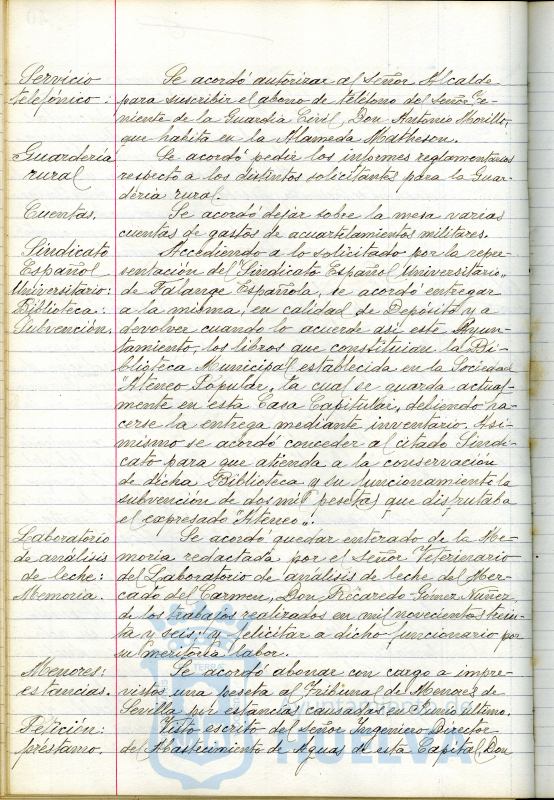 Servicio
telefónico:
Se acordó autorizar al señor Alcalde
para suscribir el abono de teléfono del Señor Te-
niente de la Guardia Civil, Don Antonio Morillo,
que habita en la Alameda Matheson.
Guardería
rural
Se acordó pedir los informes reglamentarios
respecto a los distintos solicitantes para la Guar-
dería rural.
Cuentas.
Se acordó dejar sobre la mesa varias
cuentas de gastos de acuartelamientos militares.
Sindicato
Español
Universitario:
Biblioteca:
Subvención.
Accediendo a lo solicitado por la repre-
sentación del "Sindicato Español Universitario"
de Falange Española, se acordó entregar
a la misma, en calidad de Depósito y a
devolver cuando lo acuerde así este Ayun-
tamiento, los libros que constituian la Bi-
blioteca Municipal establecida en la Sociedad
"Ateneo Popular", la cual se guarda actual-
mente en esta Casa Capitular, debiendo ha-
cerse la entrega mediante inventario. Asi-
mismo se acordó conceder al citado Sindi-
cato para que atienda a la conservación
de dicha Biblioteca y su funcionamiento la
subvención de dos mil pesetas que disfrutaba
el expresado "Ateneo".
Laboratorio
de análisis
de leche:
Memoria.
Se acordó quedar enterado de la Me-
moria redactada por el señor Veterinario
del Laboratorio de análisis de leche del Mer-
cado del Carmen, Don Ricaredo Gómez Nuñez,
de los trabajos realizados en mil novecientos trein-
ta y seis; y felicitar a dicho funcionario por
su meritoria labor.
Menores:
estancias.
Se acordó abonar con cargo a impre-
vistos una peseta al Tribunal de Menores de
Sevilla por estancias causadas en Junio último.
Petición:
préstamo.
Visto escrito del señor Ingeniero Director
del Abastecimiento de Aguas de esta Capital, Don
Ayuntamiento de
HUELVA